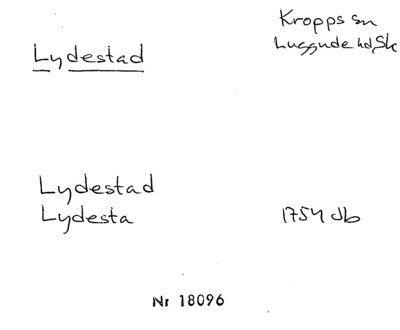 Lydestad
Kropps sn
Luggude hd, Sk
Lydestad
Lydesta 1754 Jb
Nr 18096